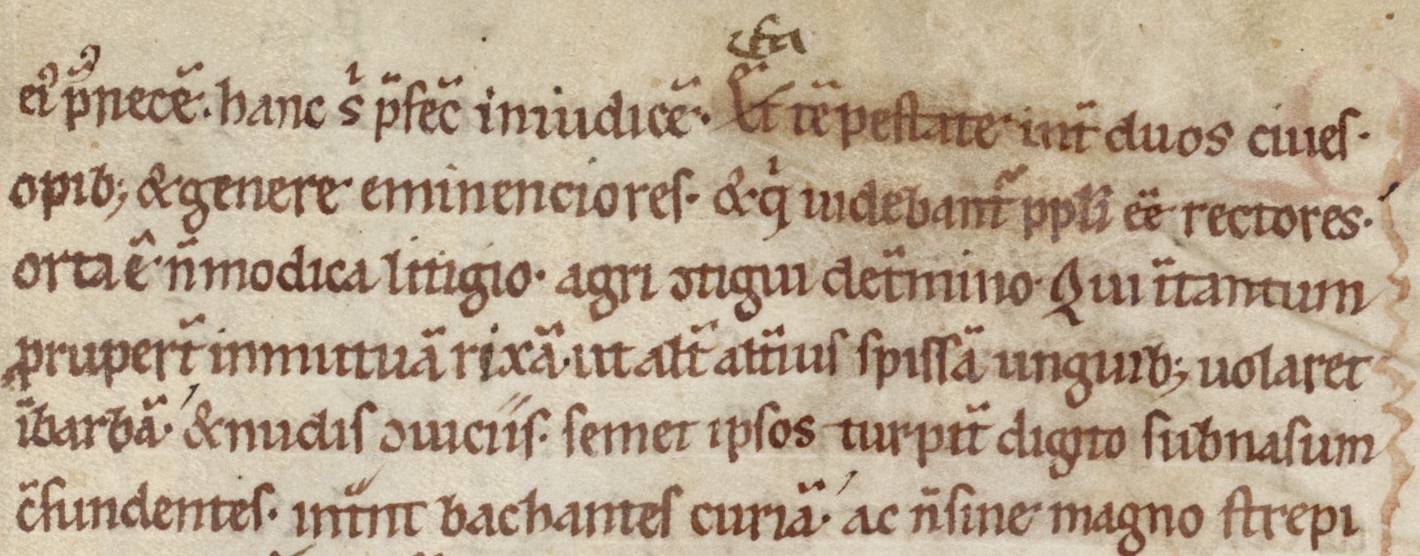 ei᷒ p̄necē. hanc s̍ p̄fec̄ iniudicē.
tēpestate int̄ duos ciues.
opib; & genere eminenciores. & qͥ uidebant᷑ ppl̄i eē rectores.
orta ē n̄ modica litigio. agri ꝯtigui det̄mino. Qui ītantum
ꝓrupert̄ inmutuā rixā. ut alt̄ alt̄ius spissā unguib; uolaret
ībarbā. & nudis ꝯuiciis. semet ipsos turpit̄ digito subnasum
c̄fundentes. int̄nt bachantes curiā. ac n̄ sine magno strepi